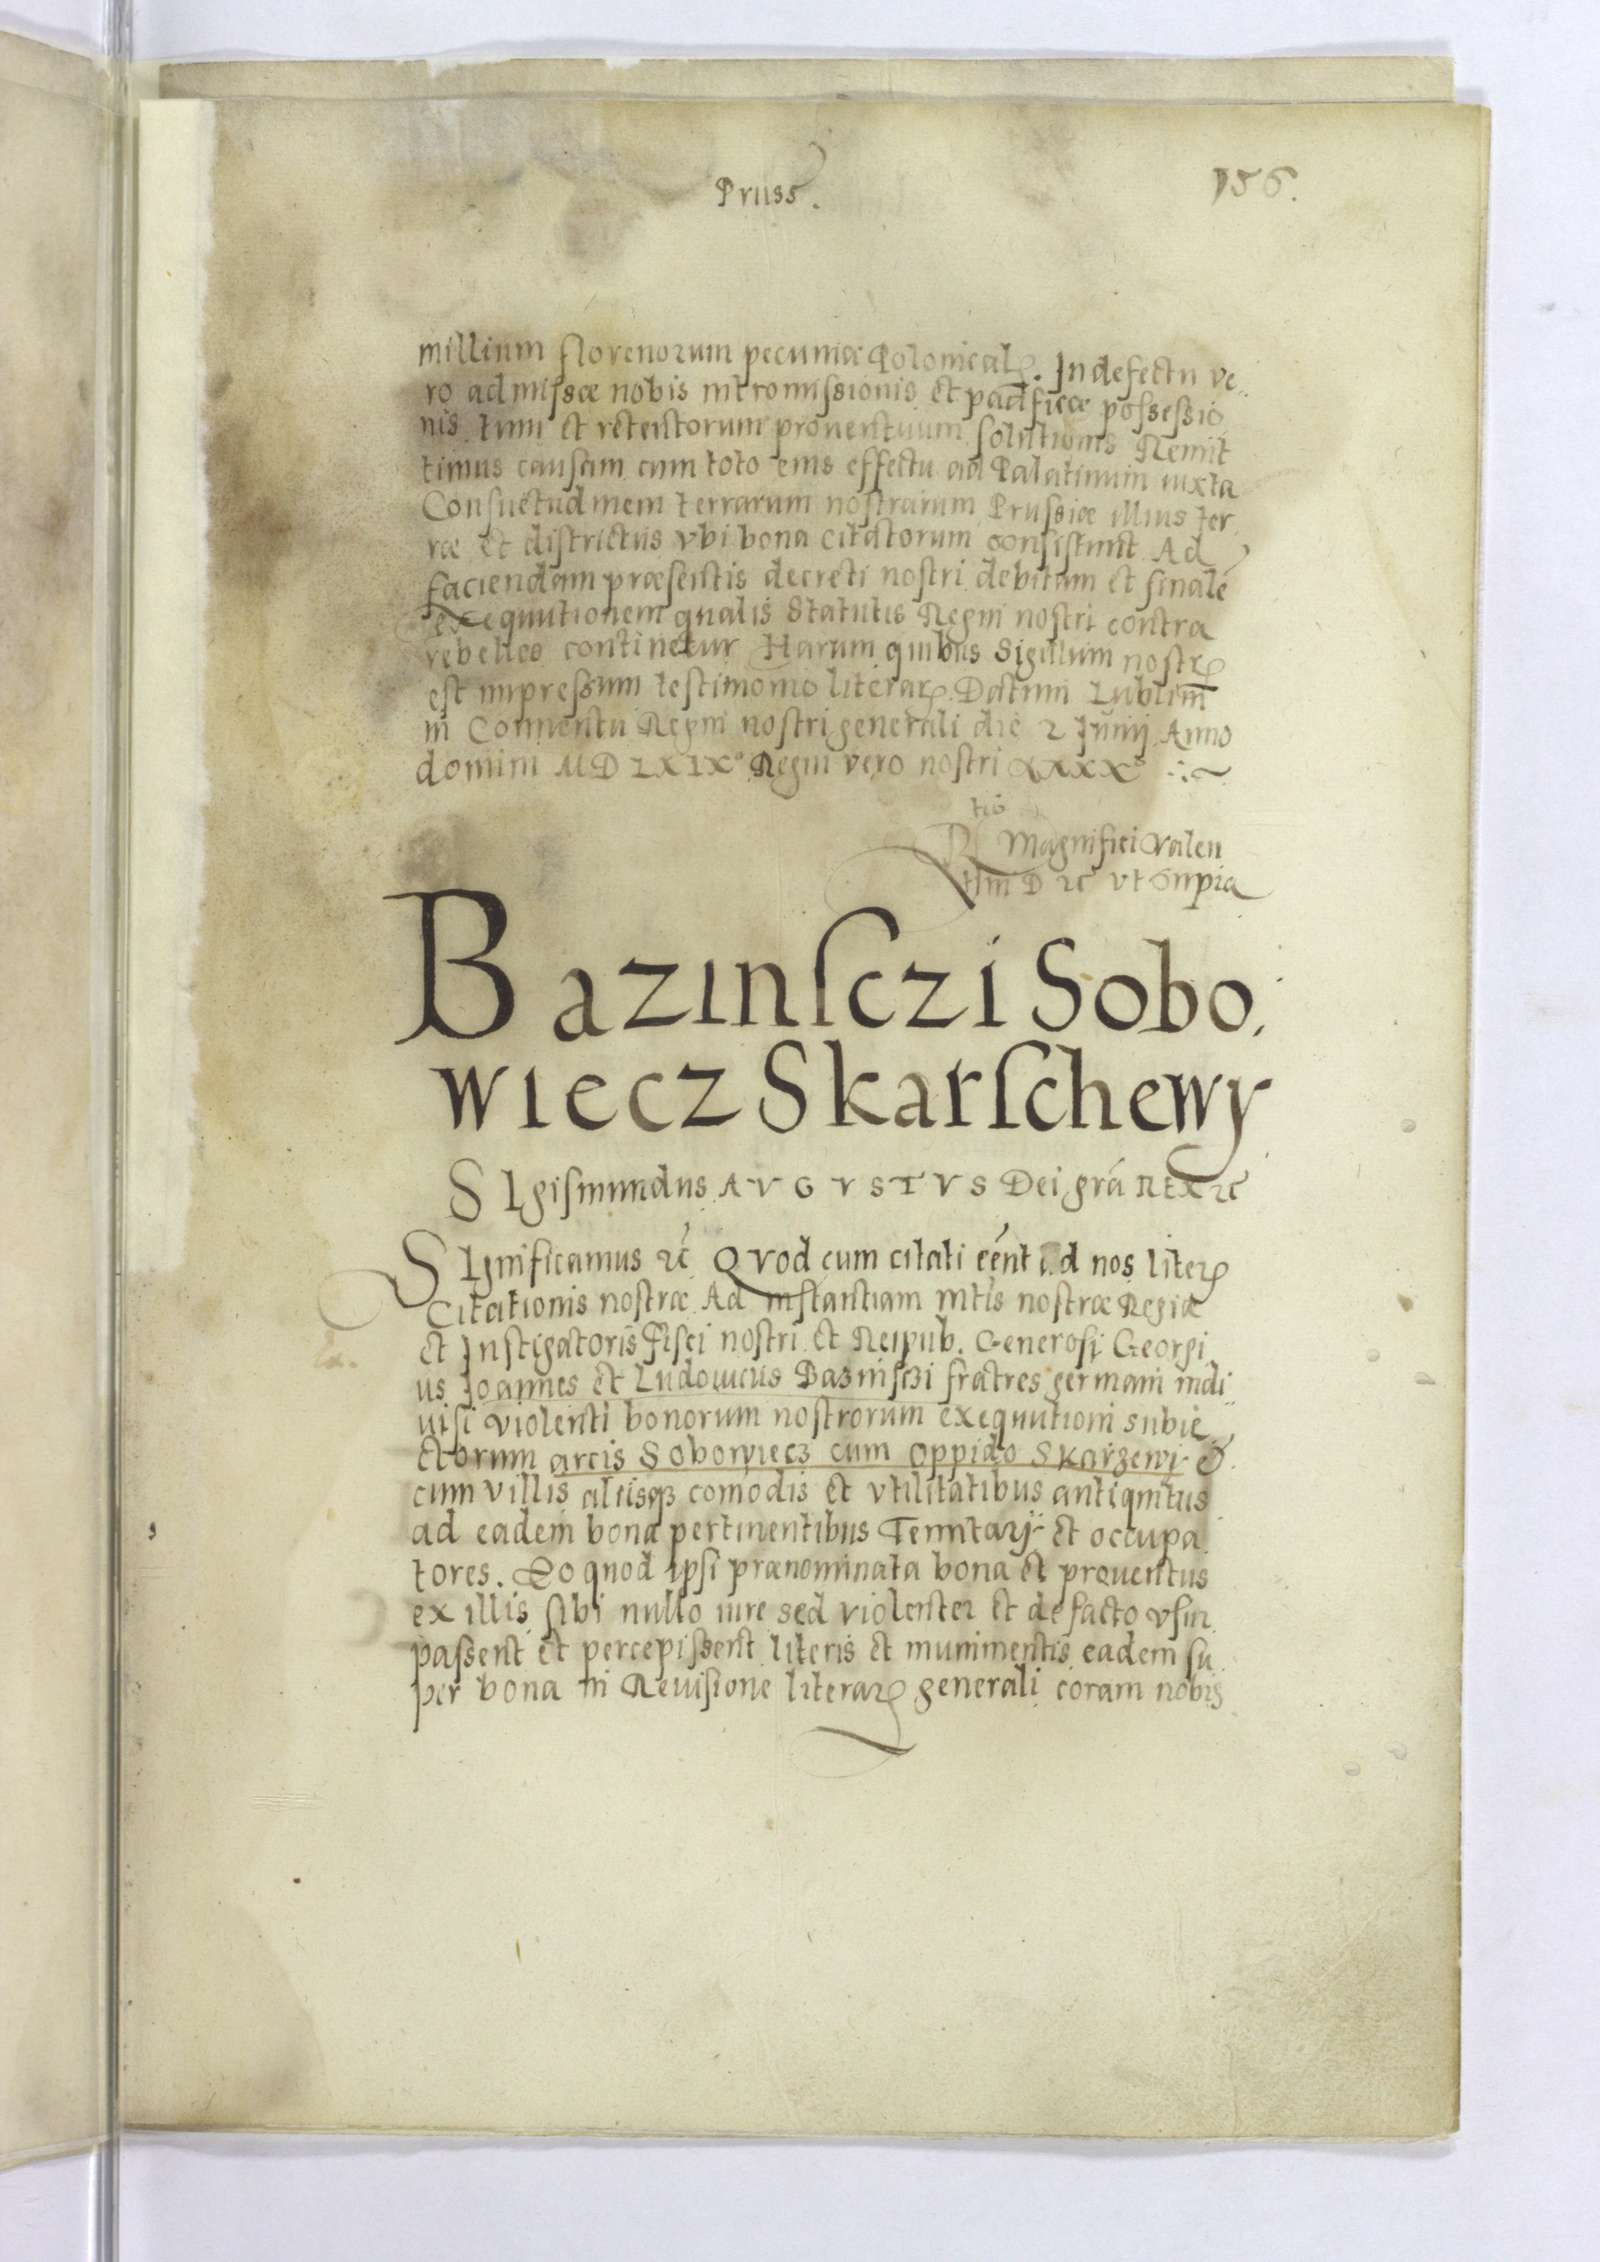 Pruss.
156.
millium florenorum pecuniæ Polonicalꝝ. In defectu ve-
ro admissæ nobis intromissionis et pacificæ possessio
nis tum et retentorum proventuum solutionis Remit
timus causam cum toto eius effectu ad Palatinum iuxta
Consuetudinem terrarum nostrarum Prussiæ illius ter
ræ et districtus vbi bona citatorum consistunt Ad
faciendam præsentis decreti nostri debitam et finalē
exequutionem qualis Statutis Regni nostri contra
rebelles continetur Harum quibus Sigillum nostrꝝ
est impressum testimonio literarꝝ. Datum Lublini
in Conventu Regni nostri generali die 2 Junij Anno
domini MDLXIXº Regni vero nostri XXXXº
Rtio Magnifici Valen
tini D etc vt supra
Bazinsczi Sobo,
wiecz Skarschewy
SIgismundus AVGVSTVS Dei grá REX etc
SIgnificamus etc Qvod cum citati eént ad nos literꝝ
Citationis nostræ Ad instantiam Mtis nostræ Regiæ
et Instigatoris Fisci nostri et Reipub. Generosi Georgi
us Joannes et Ludouicus Bazinsczi fratres germani indi-
uisi violenti bonorum nostrorum exequutioni subie
ctorum arcis Sobowiecz cum oppido Skarzewi &
cum villis aliisqꝫ comodis et vtilitatibus antiquitus
ad eadem bona pertinentibus Tenutarij et occupa
tores. Eo quod ipsi prænominata bona et proventus
ex illis sibi nullo iure sed violenter et de facto vsur
passent et percepissent literis et munimentis eadem su
per bona in Reuisione literarꝝ generali coram nobis